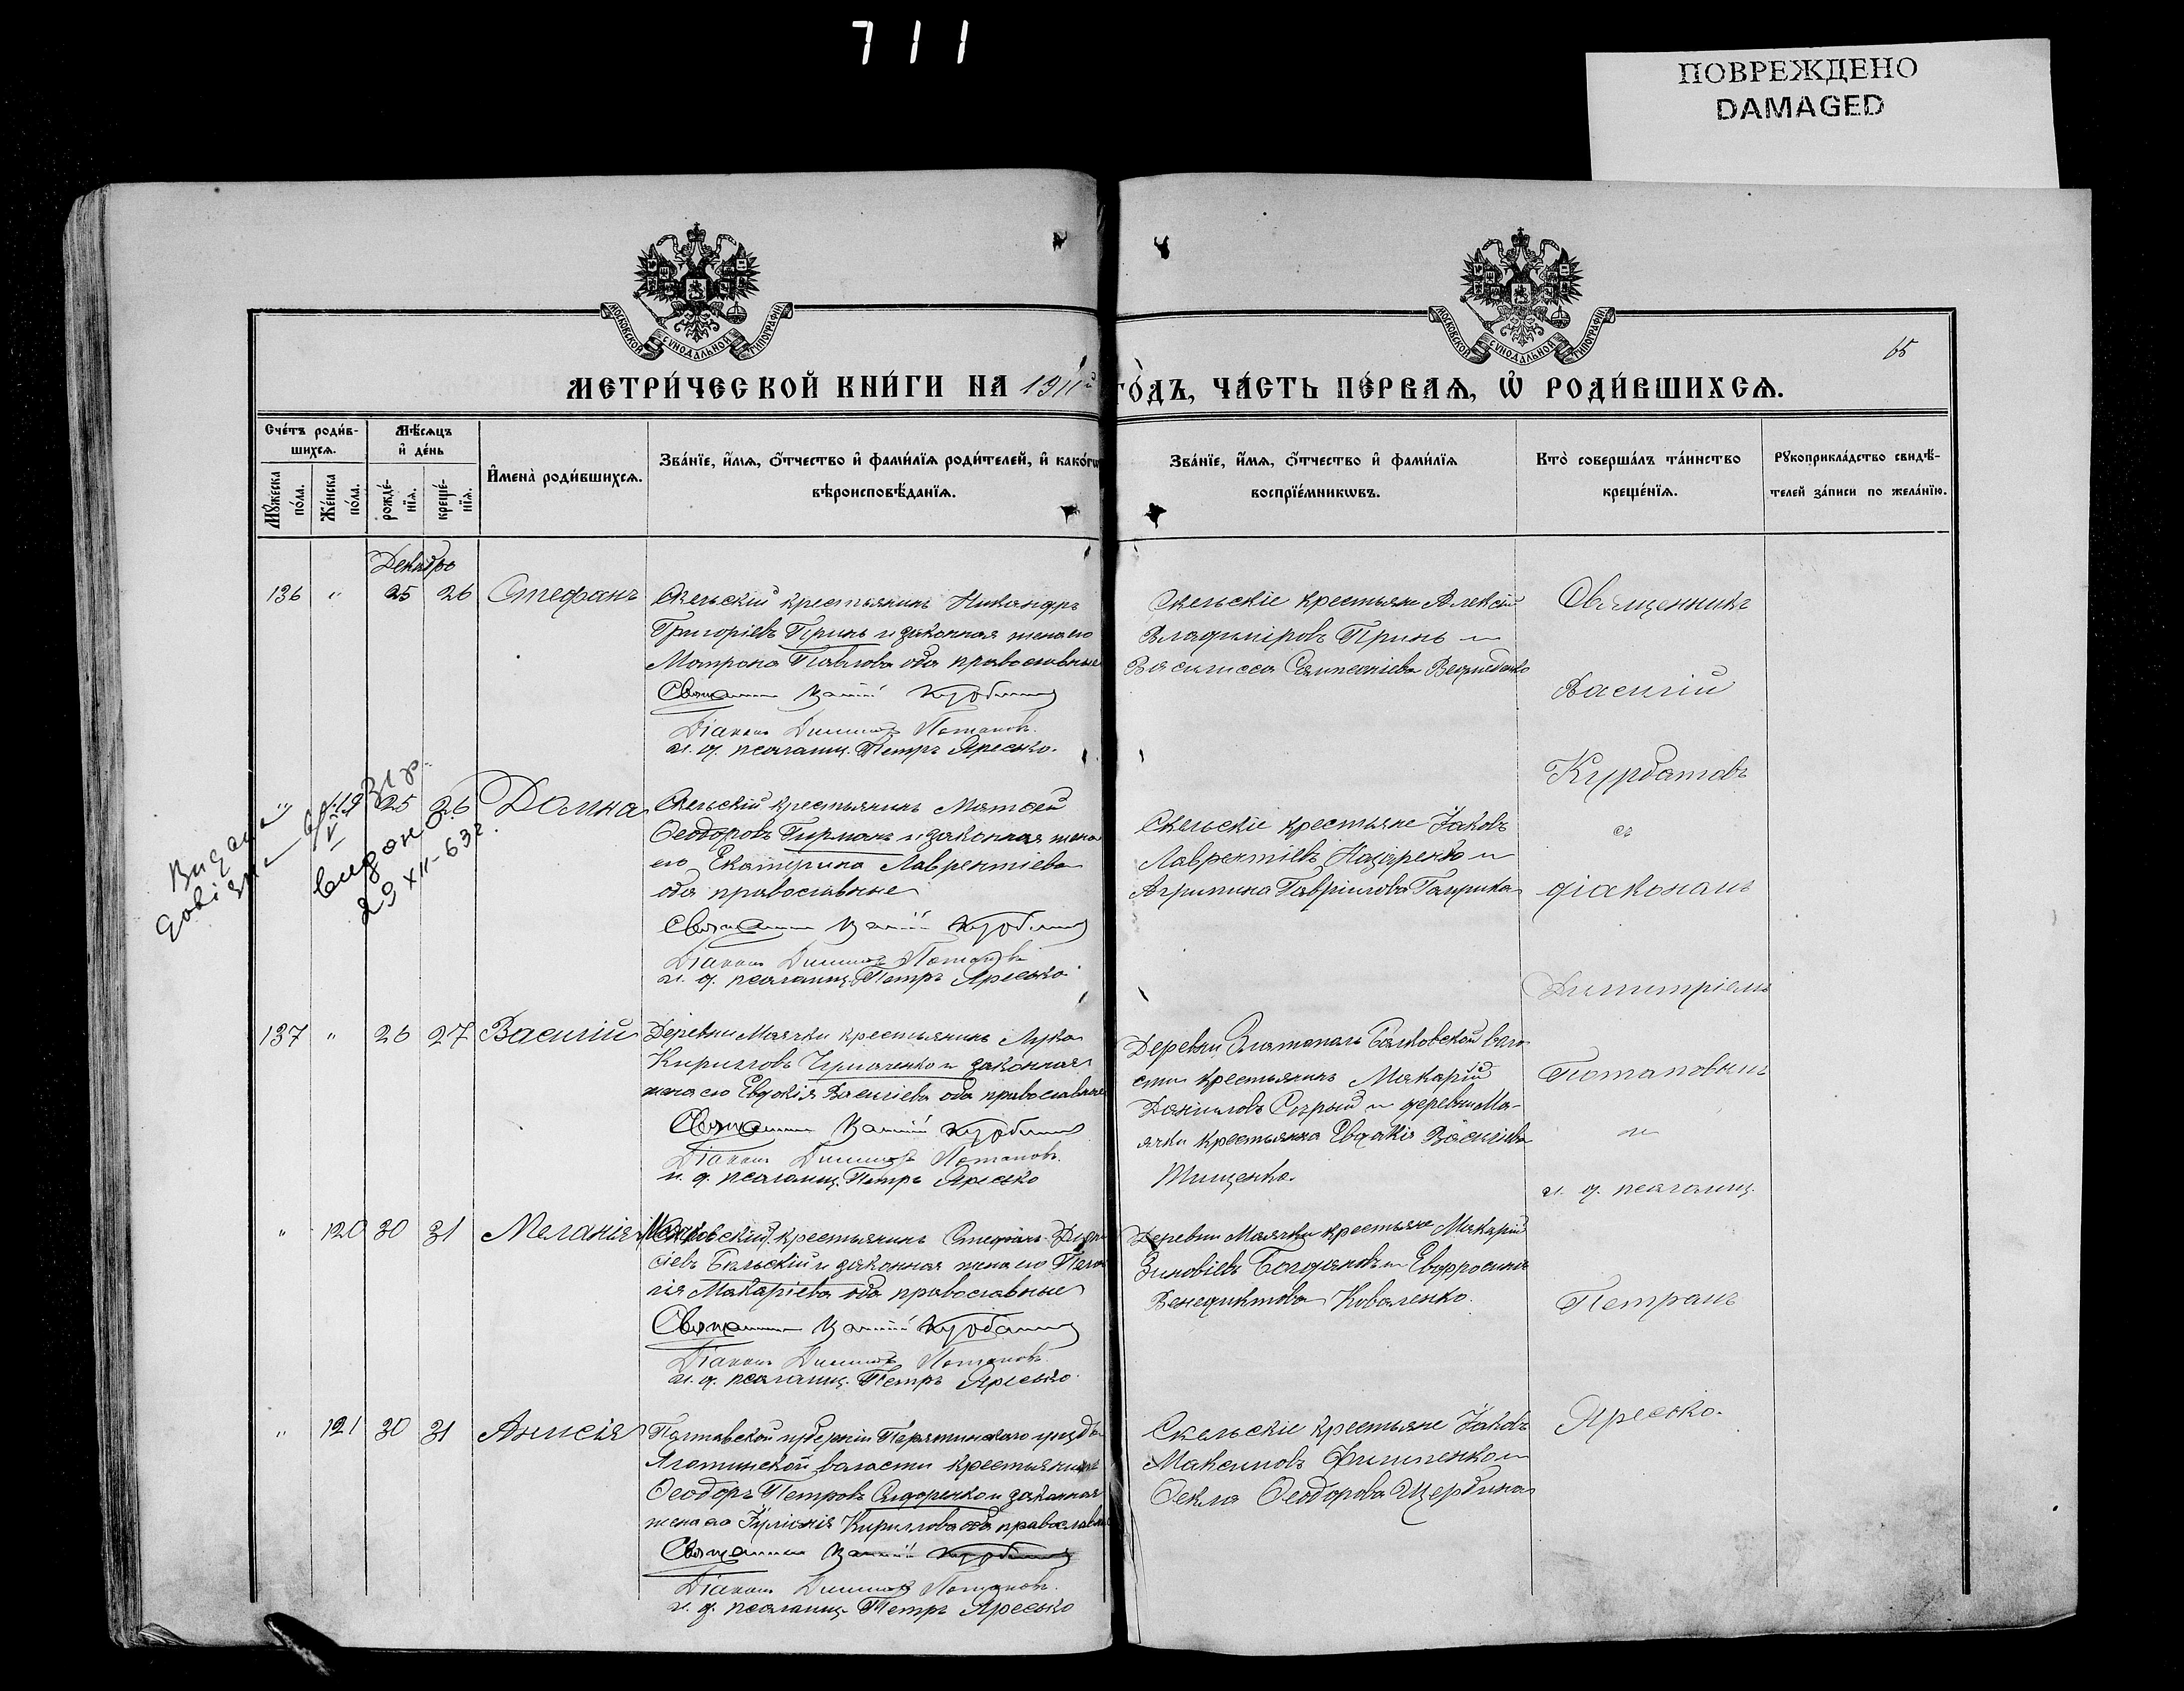 711
ПОВРЕЖДЕНО
DAMAGED
МОСКОВСКОЙ СѴНОДАЛЬНОЙ ТИПОГРАФІИ
МОСКОВСКОЙ СѴНОДАЛЬНОЙ ТИПОГРАФІИ
65
МЕТРИ́ЧЕСКОЙ КНИ́ГИ НА 1911й ГО́ДЪ, ЧА́СТЬ ПЕ́РВАѦ, Ѽ РОДИ́ВШИХСѦ.
Сче́тъ роди́в-
шихсѧ.
Мѣ́сѧцъ
и҆ де́нь
Мꙋ́жеска по́ла.
Же́нска по́ла.
рожде́-нїѧ.
креще́-нїѧ.
И҆мена̀ роди́вшихсѧ.
Зва́нїе, и҆́мѧ, ѻ҆́тчество и҆ фами́лїѧ роди́телей, и҆ како́гѡ
вѣроисповѣ́данїѧ.
Зва́нїе, и҆́мѧ, ѻ҆́тчество и҆ фами́лїѧ
воспрїе́мникѡвъ.
Кто̀ соверша́лъ та́инство
креще́нїѧ.
Рꙋкоприкла́дство свидѣ́-
телей за́писи по жела́нїю.
Декабро
136 " 25 26 Стефанъ
Скельскій крестьянинъ Никандръ
Григоріевъ Принь и законная жена его
Матрона Павлова оба православные
Священникъ Василій Курбатовъ
Діаконъ Димитрій Потаповъ.
и. д. псаломщ. Петръ Яресько.
Скельскіе крестьяне Алексій
Владиміровъ Принь и
Василисса
Священникъ
Василій
Курбатовъ
съ
діакономъ
Димитріемъ
Потаповымъ
и
и. д. псаломщ.
Петромъ
Яресько.
" 119 25 26 Домна
Скельскій крестьянинъ Матѳей
Ѳеодоровъ Гирманъ и законная жена
его Екатерина Лаврентіева
оба православные
Священникъ Василій Курбатовъ
Діаконъ Димитрій Потаповъ
и. д. псаломщ. Петръ Яресько
Скельскіе крестьяне Іаковъ
Лаврентіевъ Назаренко и
Агрипина Гавріилова
29 XII-63г
137 " 26 27 Василій
Деревни Маячки крестьянинъ Лука
Кирилловъ и законная
жена его Евдокія Василіева оба православные
Священникъ Василій Курбатовъ
Діаконъ Димитрій Потаповъ.
и. д. псаломщ. Петръ Яресько
Деревни Златополь Балковской воло-
сти крестьянинъ Макарій
Даниловъ Сѣрый и деревни Ма-
ячки крестьянка Евдокія Васильева
Тищенко.
" 120 30 31 Меланія
крестьянинъ Стефанъ Діони-
сіевъ Бѣльскій и законная жена его Пела-
гія Макаріева оба православные
Священникъ Василій Курбатовъ
Діаконъ Димитрій Потаповъ.
и. д. псаломщ. Петръ Яресько.
Деревни Маячки крестьяне Макарій
Зиновіевъ Богдановъ и Евфросинія
Венедиктова Коваленко.
" 121 30 31 Анисія
Полтавской губерніи Пирятинского уѣзда
Яготинской волости крестьянинъ
Ѳеодоръ Петровъ Сидоренко и законная
жена его Іуліанія Кириллова оба православные
Священникъ Василій Курбатовъ
Діаконъ Димитрій Потаповъ.
и. д. псаломщ. Петръ Яресько
Скельскіе крестьяне Іаковъ
Максимовъ Филипенко и
Ѳекла Ѳеодорова Щербина